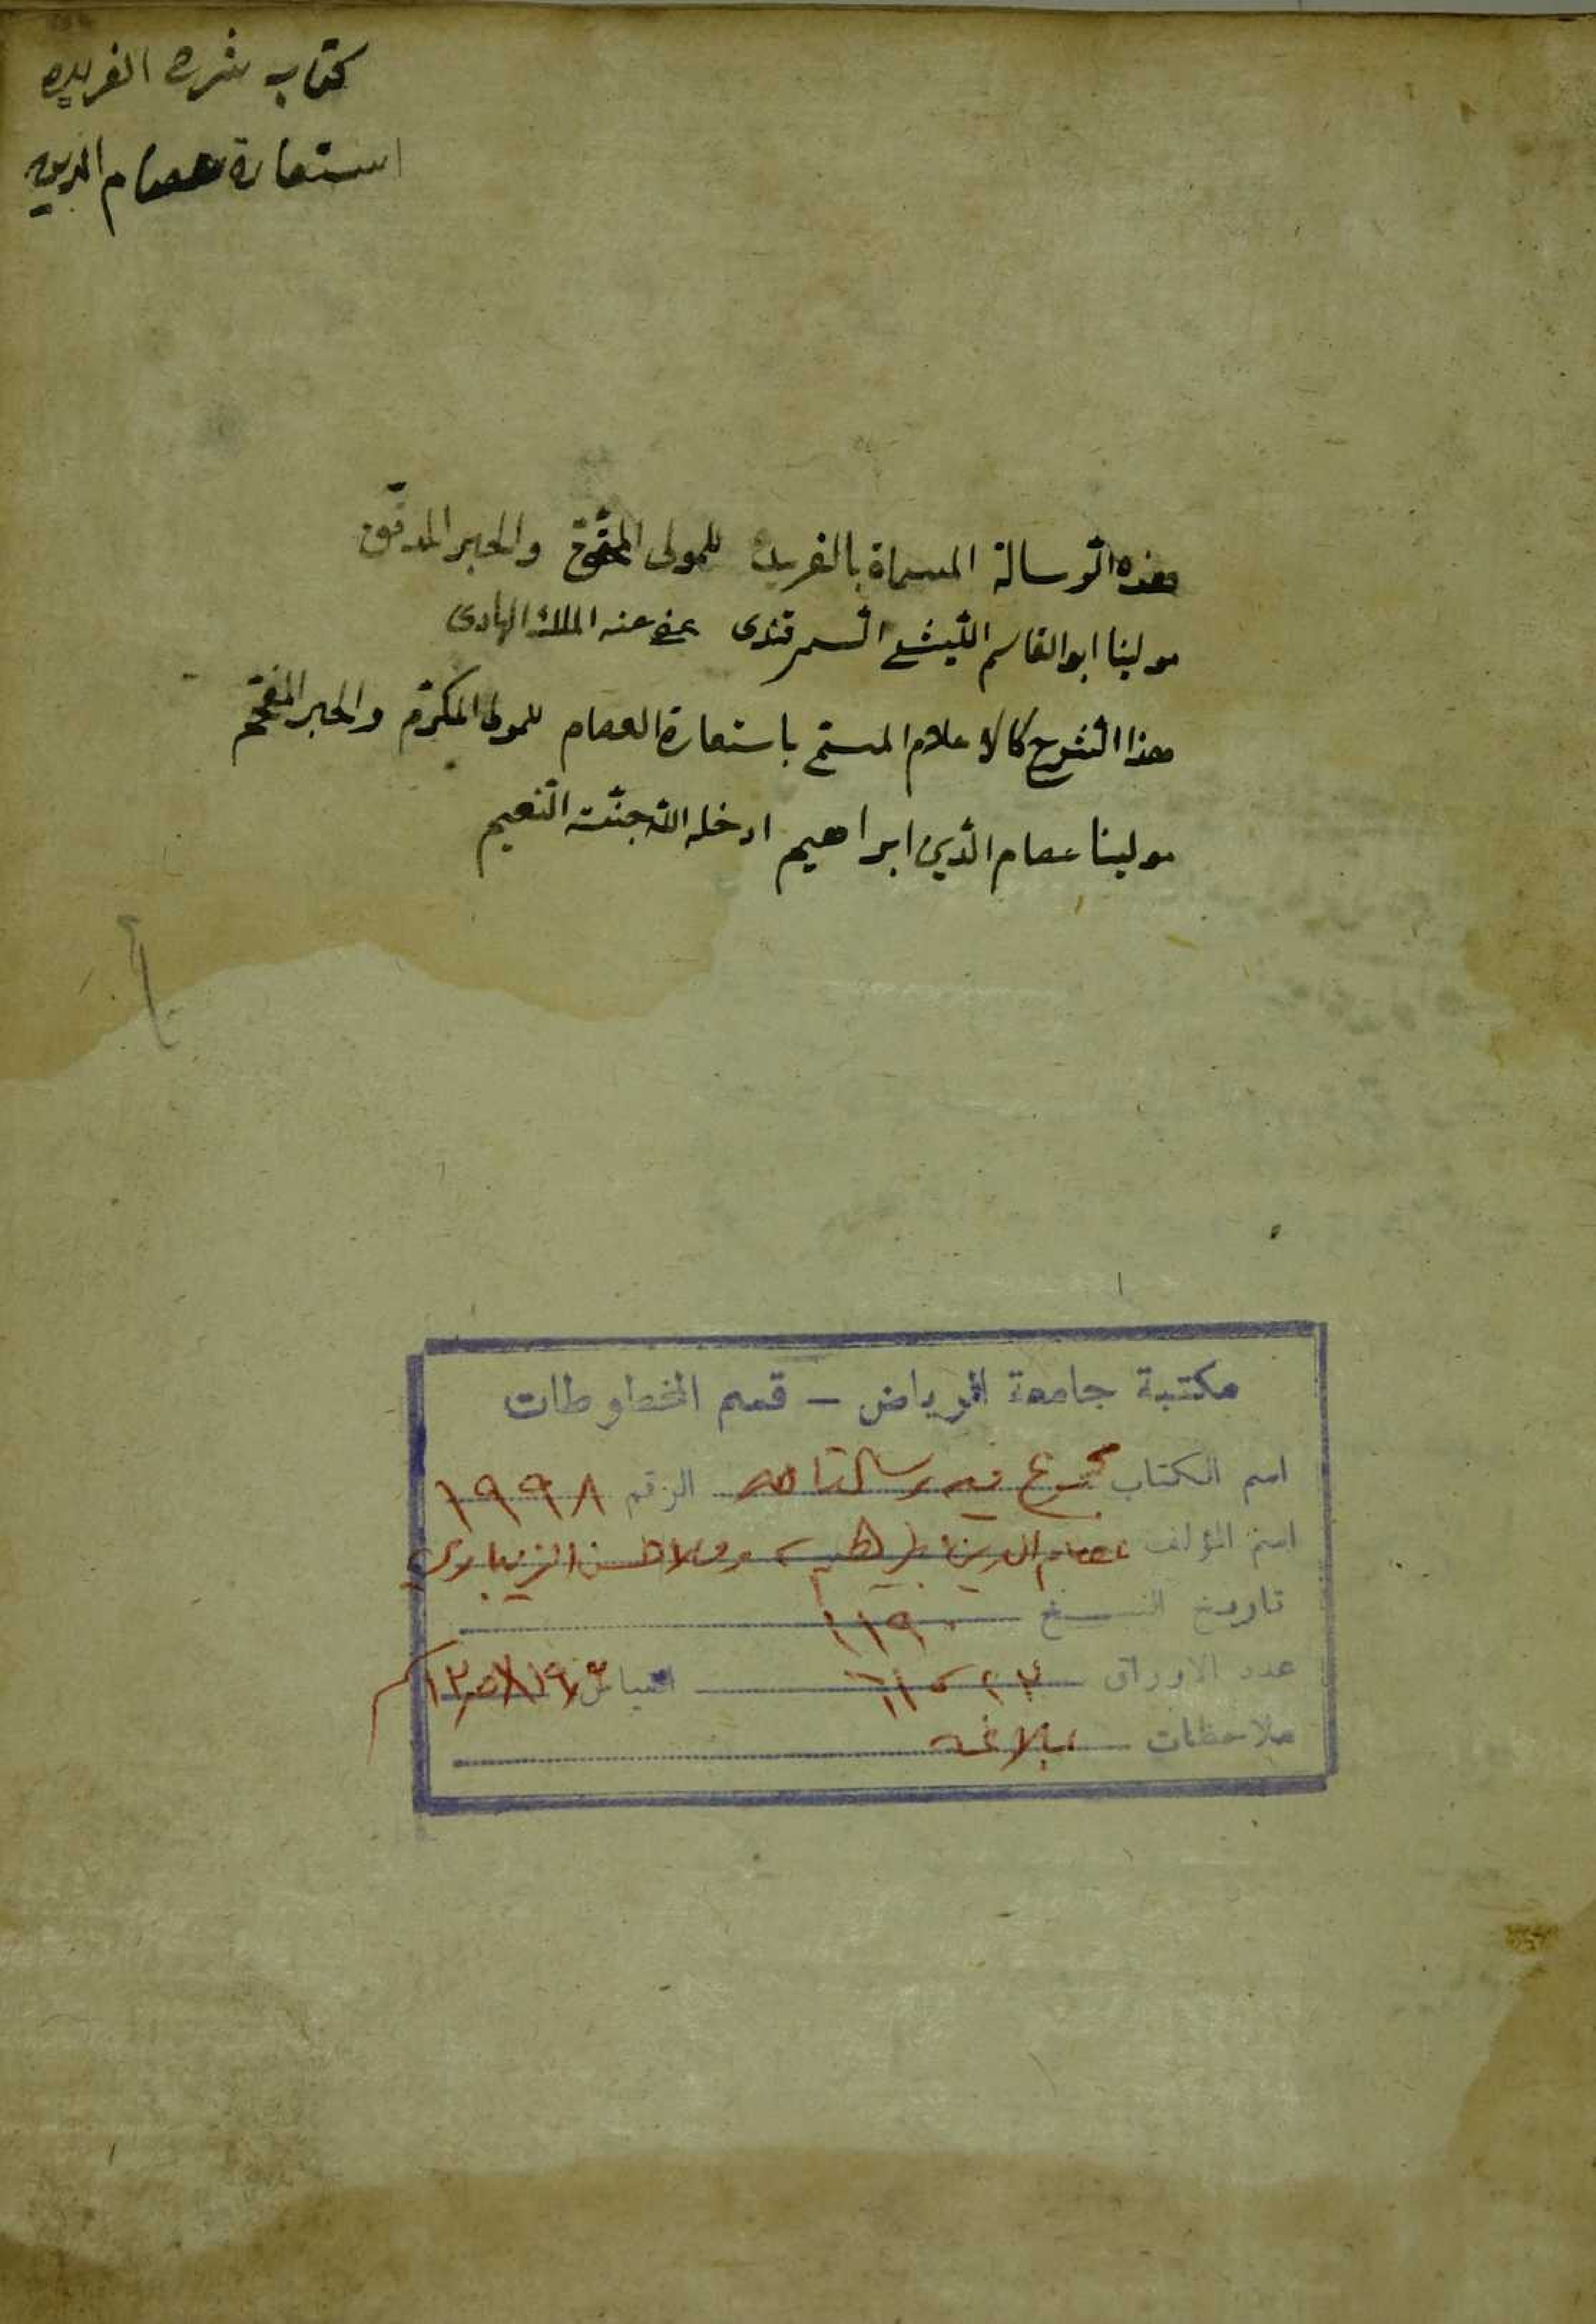 كتاب شرح الفريده
استعارة عصام الدين
هذه الرسالة المسماة بالفريدة للمولى المحقق والحبر المدقق
مولينا ابو القاسم الليثي السمرقندى عفى عنه الملك الهادى
هذا الشرح كالاعلام المسمى باستعارة العصام للمولى المكرم والحبر المفخم
مولينا عصام الدين ابراهيم ادخله الله جنت النعيم
مكتبة جامعة الرياض - قسم المخطوطات
اسم الكتاب مجموع فيه رسالتان الرقم ١٩٩٨
اسم المؤلف عصام الدين ابراهيم وملا حسن الزيباري
تاريخ النسخ ١١٩٠
عدد الاوراق القياس
ملاحظات بلاغه